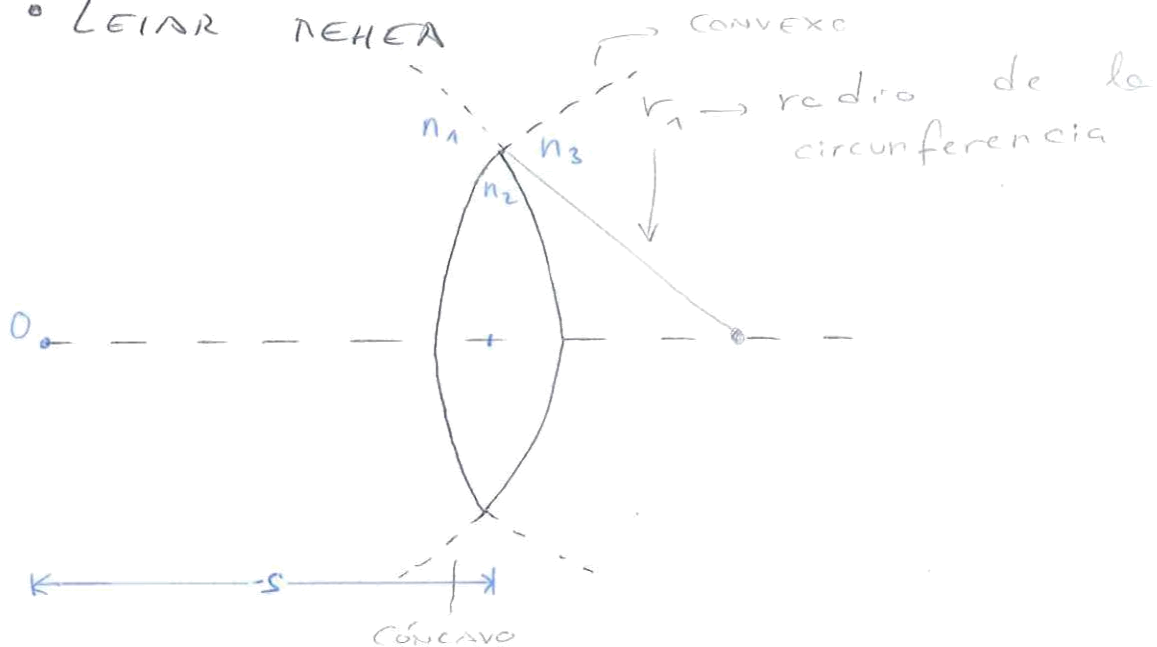 • LEIAR MEHEA
CONVEXO
r₁ → radio de la
circunferencia
n₁
n₃
n₂
O
-S
CÓNCAVO